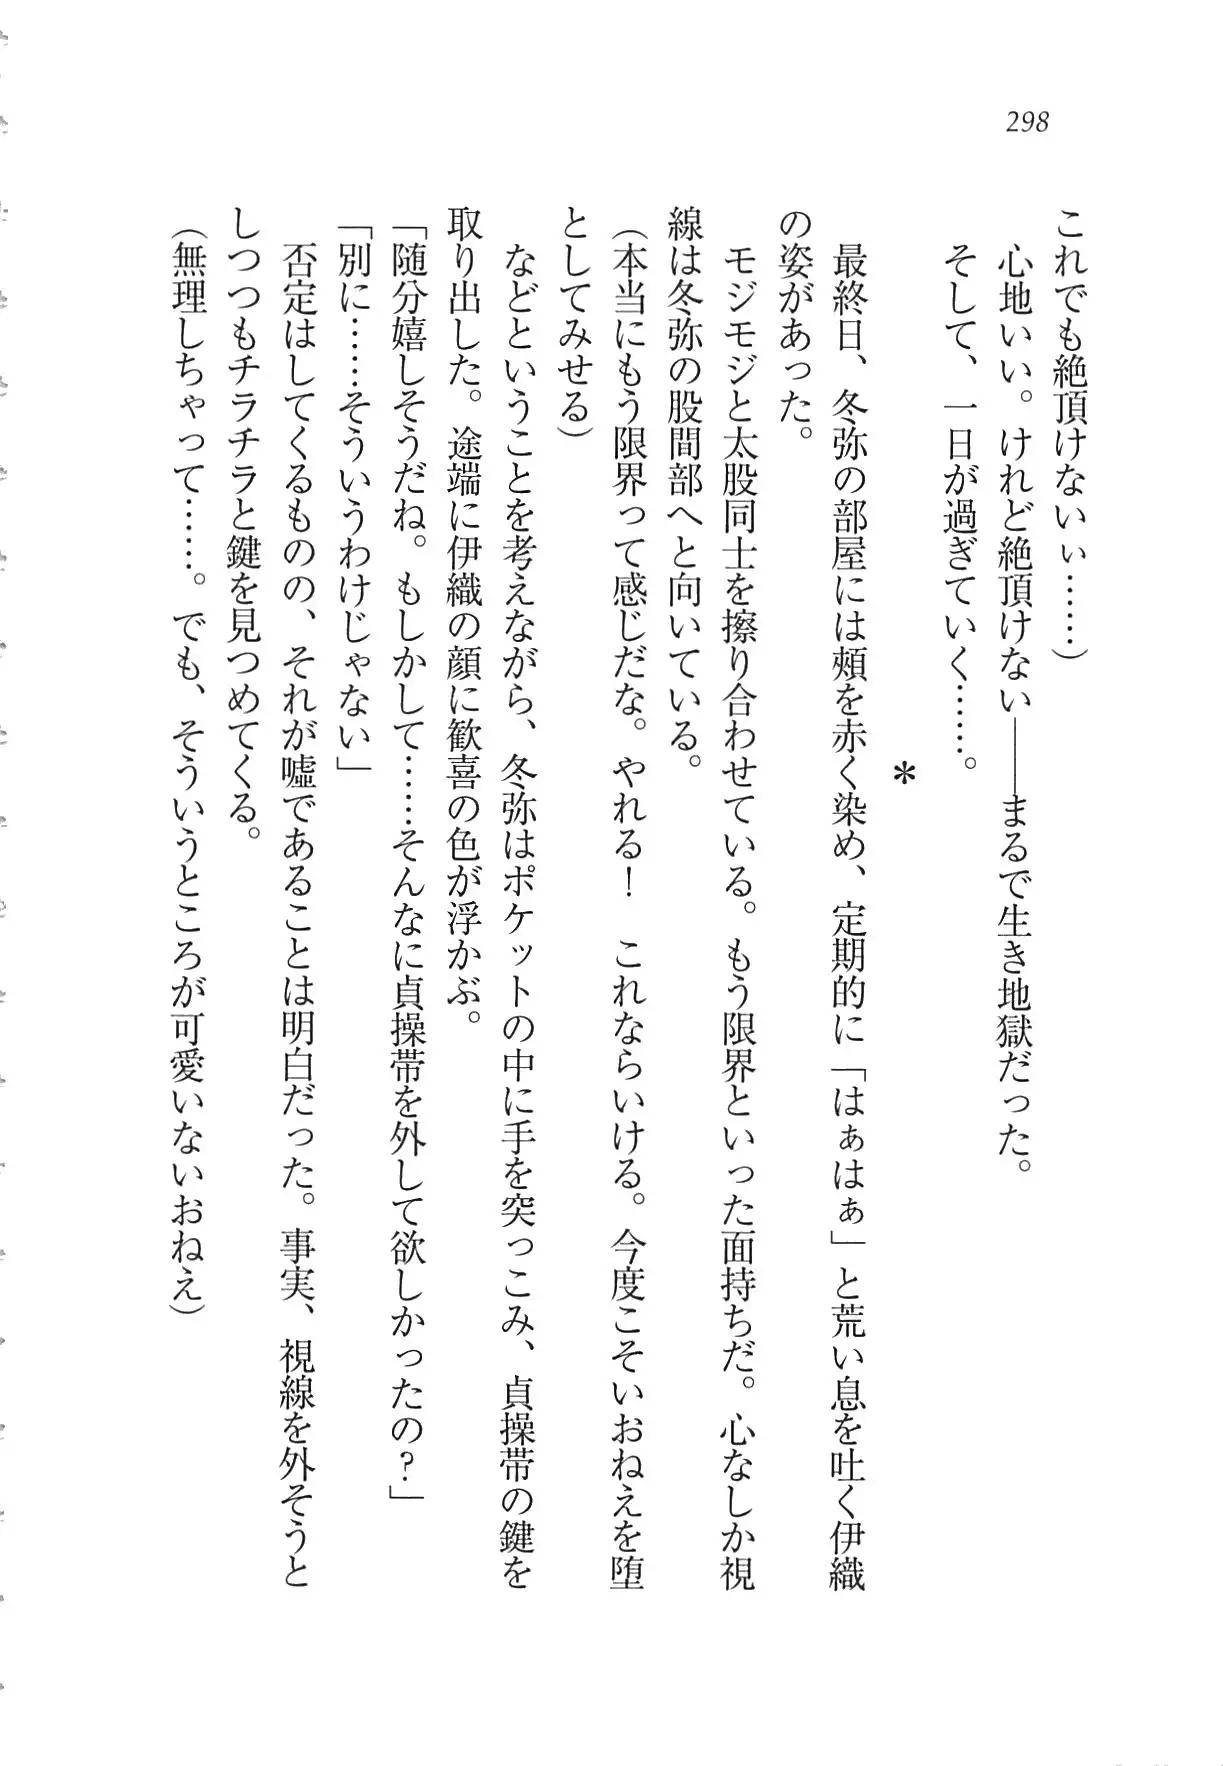 298
これでも絶頂けないぃ……）
心地いい。けれど絶頂けない――まるで生き地獄だった。
そして、一日が過ぎていく……。
＊
最終日、冬弥の部屋には頰を赤く染め、定期的に「はぁはぁ」と荒い息を吐く伊織
の姿があった。
モジモジと太股同士を擦り合わせている。もう限界といった面持ちだ。心なしか視
線は冬弥の股間部へと向いている。
（本当にもう限界って感じだな。やれる！　これならいける。今度こそいおねえを堕
としてみせる）
などということを考えながら、冬弥はポケットの中に手を突っこみ、貞操帯の鍵を
取り出した。途端に伊織の顔に歓喜の色が浮かぶ。
「随分嬉しそうだね。もしかして……そんなに貞操帯を外して欲しかったの？」
「別に……そういうわけじゃない」
否定はしてくるものの、それが嘘であることは明白だった。事実、視線を外そうと
しつつもチラチラと鍵を見つめてくる。
（無理しちゃって……。でも、そういうところが可愛いないおねえ）